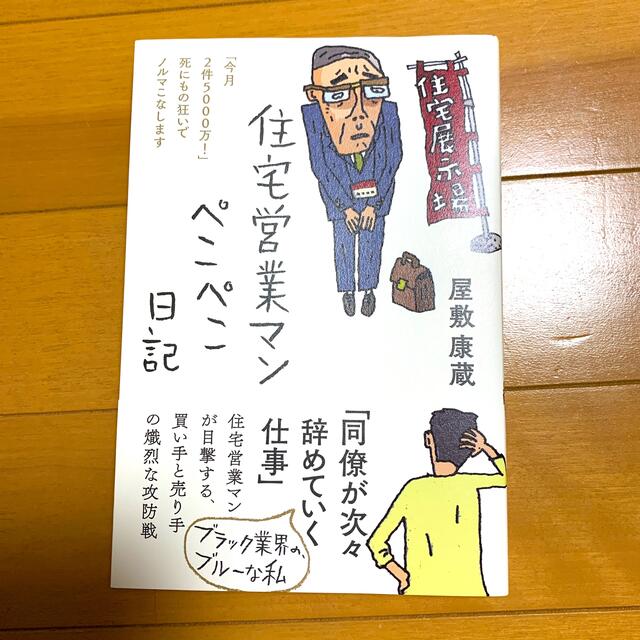 「今月
2件5000万！」
死にもの狂いで
ノルマこなします
住宅営業マン
ぺこぺこ
日記
住宅展示場
屋敷康蔵
「同僚が次々
辞めていく
仕事」
住宅営業マン
が目撃する、
買い手と売り手
の熾烈な攻防戦
ブラック業界の、
ブルーな私